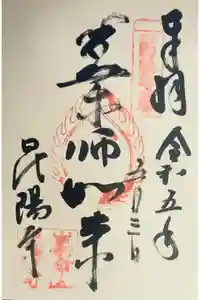 奉拝 令和五年
五月三日
薬師如来
昆陽寺